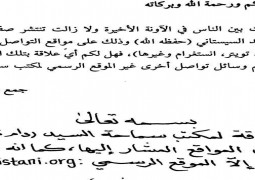 كم ورحمة الله وبركاته
بين الناس في الآونة الأخيرة ولا زالت تنتشر صفـ
السيستاني (حفظه الله) وذلك على مواقع التواصل
تويتر، انستغرام وغيرها)، فهل لكم أيّ علاقة بتلك ا
م وسائل تواصل أخرى غير الموقع الرسمي لمكتب سـ
جمع
بسمه تعالى
قة لمكتب سماحة السيد (دام
المواقع المشار إليها، كما أنه
إلّا الموقع الرسمي: istani.org